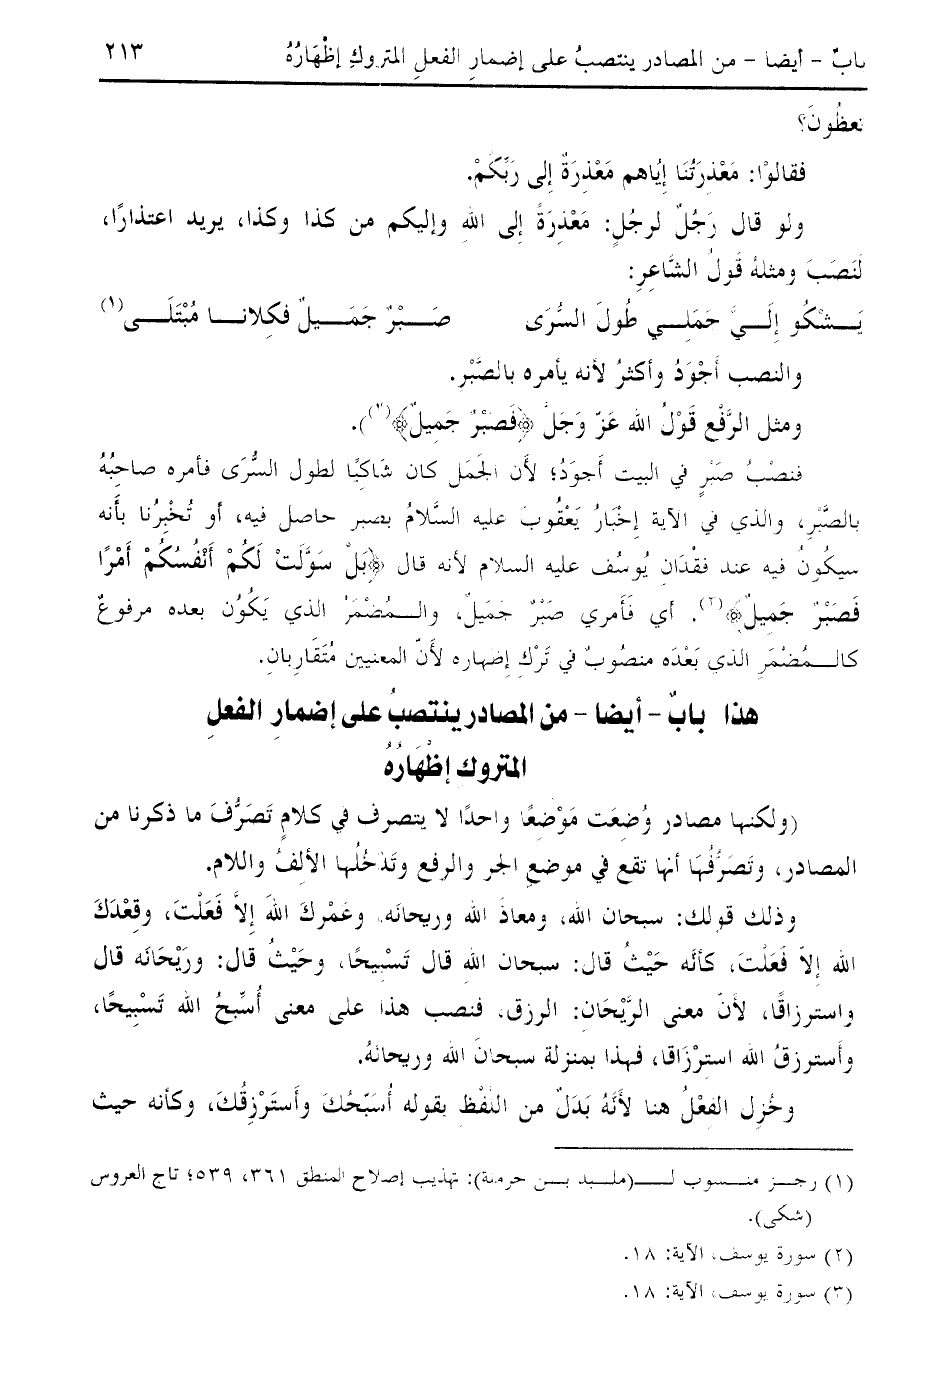 بابٌ - أيضا - من المصادر ينتصبُ على إضمارِ الفعلِ المتروكِ إظْهَارُهُ ٢١٣
تعظُونَ؟
فقالوْا: مَعْذرَتُنَا إيَّاهم مَعْذرَةٌ إلى رَبِّكُمْ.
ولو قال رَجُلٌ لرجُلٍ: مَعْذرَةً إلى الله وإليكم من كذا وكذا، يريد اعتذارًا،
لَنَصَبَ ومثلهُ قَولُ الشَّاعرِ:
يَشْكُو إلَيَّ جَمَلي طُولَ السُّرَى صَبْرٌ جَمَيلٌ فكلانا مُبْتَلَى(١)
والنصب أجْوَدُ وأكثرُ لأنه يأمره بالصَّبْرِ.
ومثل الرَّفْعِ قَوْلُ الله عَزّ وَجَلّ ﴿فَصَبْرٌ جَميلٌ﴾(٢).
فنصْبُ صَبْرٍ في البيت أجوَدُ؛ لأن الجَمَل كان شَاكيًا لطول السُّرَى فأمره صاحبُهُ
بالصَّبْرِ، والذي في الآية إخْبَارُ يَعْقُوبَ عليه السَّلامُ بصبر حاصل فيه، أو تُخْبِرُنا بأنه
سيكونُ فيه عند فقْدَان يُوسُف عليه السلام لأنه قال ﴿بَلْ سَوَّلَتْ لَكُمْ أنْفُسُكُمْ أمْرًا
فَصَبْرٌ جَميلٌ﴾(٣). أي فَأمري صَبْرٌ جَميلٌ، والمُضْمَرُ الذي يَكُوُن بعده مرفوعٌ
كالمُضْمَرِ الذي بَعْدَه منصُوبٌ في تَرْك إظهاره لأنّ المعنيين مُتَقَارِبان.
هذا بابٌ - أيضا - من المصادر ينتصبُ على إضمارِ الفعلِ
المتروك إظْهَارُهُ
(ولكنها مصادر وُضعَت مَوْضعًا واحدًا لا يتصرف في كلامٍ تَصَرُّفَ ما ذكرنا من
المصادر، وتَصَرُّفُهَا أنها تقع في موضعِ الجر والرفع وتَدْخُلُها الألفُ واللام.
وذلك قولك: سبحان الله، ومعاذَ الله وريحانَه. وعَمْركَ اللهَ إلاَّ فَعَلْتَ، وقعْدَكَ
الله إلاّ فَعَلْتَ، كأنَّه حَيْثُ قال: سبحان الله قال تَسْبيحًا، وحَيْثُ قال: ورَيْحَانَه قال
واسترزاقًا، لأنّ معنى الرَّيْحَان: الرزق. فنصب هذا على معنى أُسَبِّحُ الله تَسْبيحًا،
وأسترزقُ الله استرْزَاقا، فهذا بمنزلة سبحانَ الله وريحانَهُ.
وخُزل الفعْلُ هنا لأنَّهُ بَدَلٌ من اللفْظ بقوله أُسَبّحُكَ وأستَرْزقُكَ، وكأنه حيث
(١) رجز منسوب لـ(ملبد بن حرملة): تهذيب إصلاح المنطق ٣٦١، ٥٣٩؛ تاج العروس
(شكى).
(٢) سورة يوسف، الآية: ١٨.
(٣) سورة يوسف، الآية: ١٨.